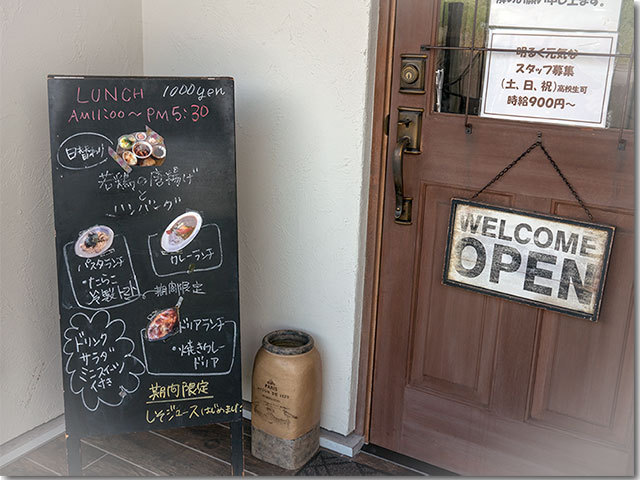 LUNCH 1000yen
AM11:00～PM5:30
日替わり
若鶏の唐揚げ
と
ハンバーグ
パスタランチ
・たらこ
・冷製トマト
カレーランチ
期間限定
ドリアランチ
・焼きカレー
ドリア
ドリンク
サラダ
ミニスイーツ
付き
期間限定
しそジュースはじめました
お願い申し上ます。
明るく元気な
スタッフ募集
(土、日、祝)高校生可
時給900円～
WELCOME
OPEN
PARIS